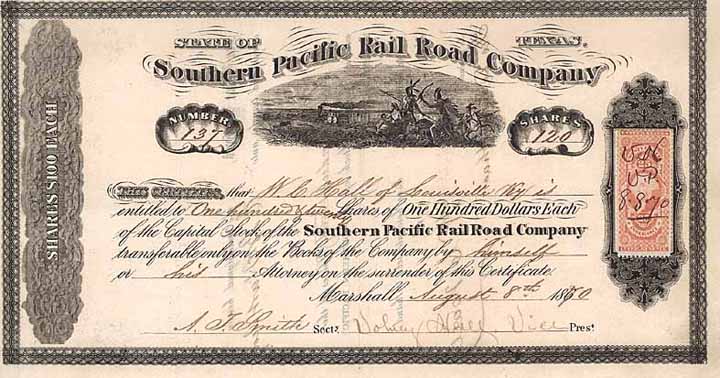 STATE OF TEXAS.
Southern Pacific Rail Road Company
NUMBER 137
SHARES 120
SHARES $100 EACH
THIS CERTIFIES, that W. C. Hall of Louisville Ky is
entitled to One hundred & twenty Shares of One Hundred Dollars Each
of the Capital Stock of the Southern Pacific Rail Road Company
transferable only on the Books of the Company by himself
or his Attorney on the surrender of this Certificate.
Marshall August 8th 1860
A. T. Smith Secty. Volney Hall Vice Prest
V H
V P
8 8 70